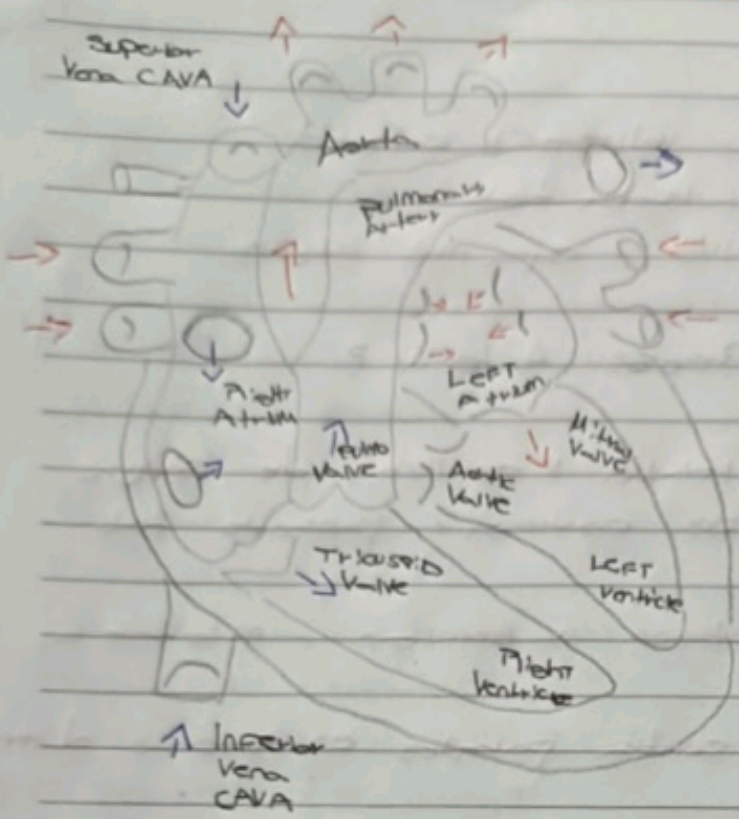 Superior
Vena CAVA
Aorta
Pulmonary
Artery
Left
Atrium
Right
Atrium
Mitral
Valve
Pulmo
Valve
Aortic
Valve
Tricuspid
Valve
Left
Ventricle
Right
Ventricle
Inferior
Vena
CAVA